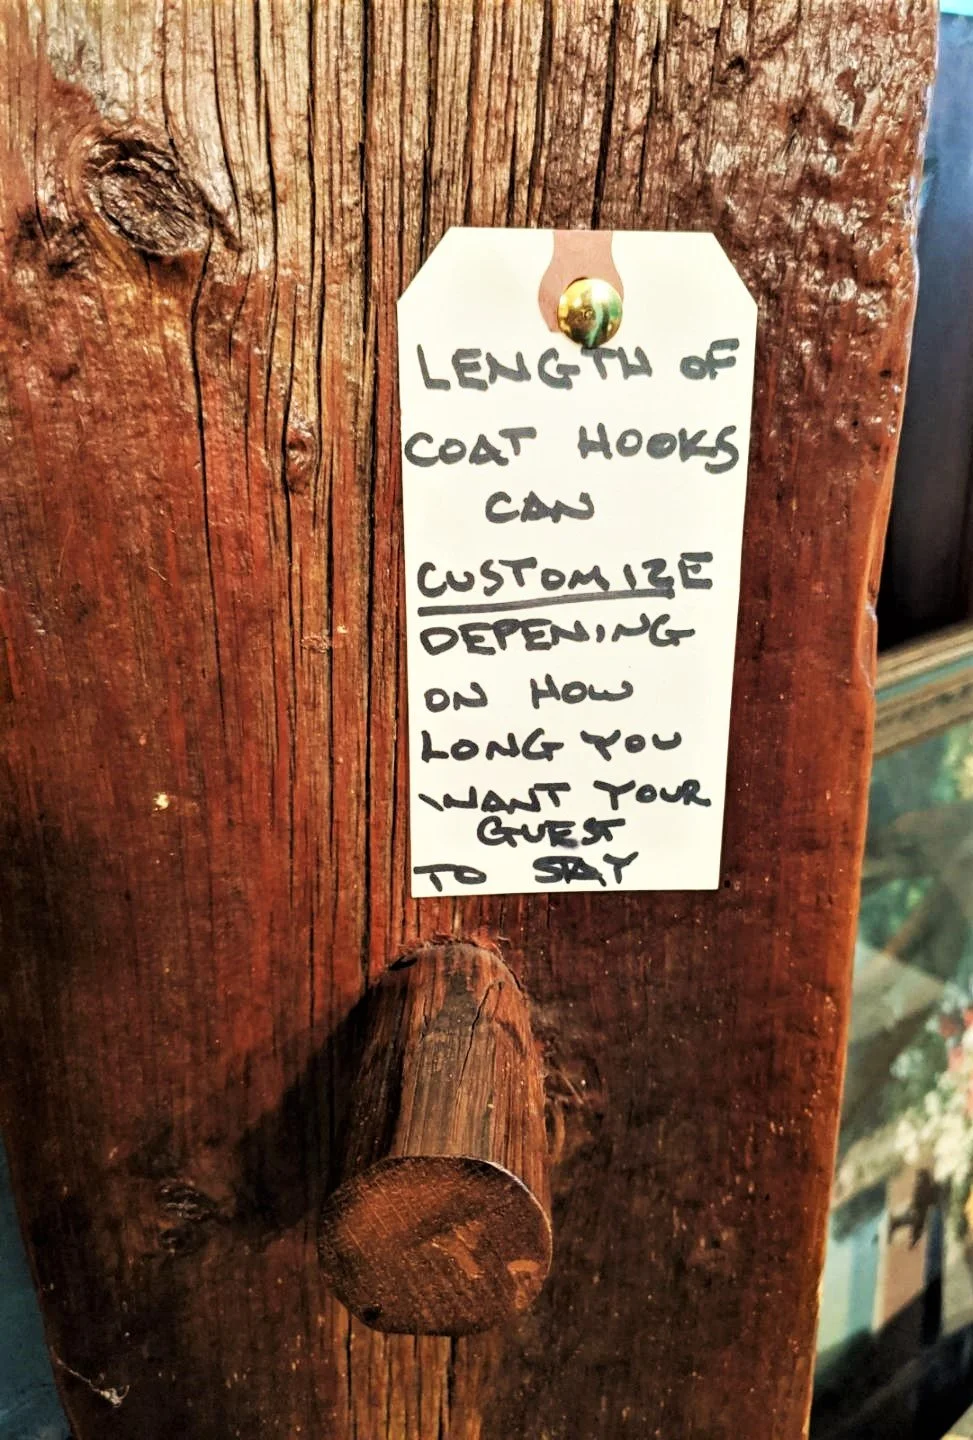 LENGTH OF
COAT HOOKS
CAN
CUSTOMIZE
DEPENING
ON HOW
LONG YOU
WANT YOUR
GUEST
TO STAY